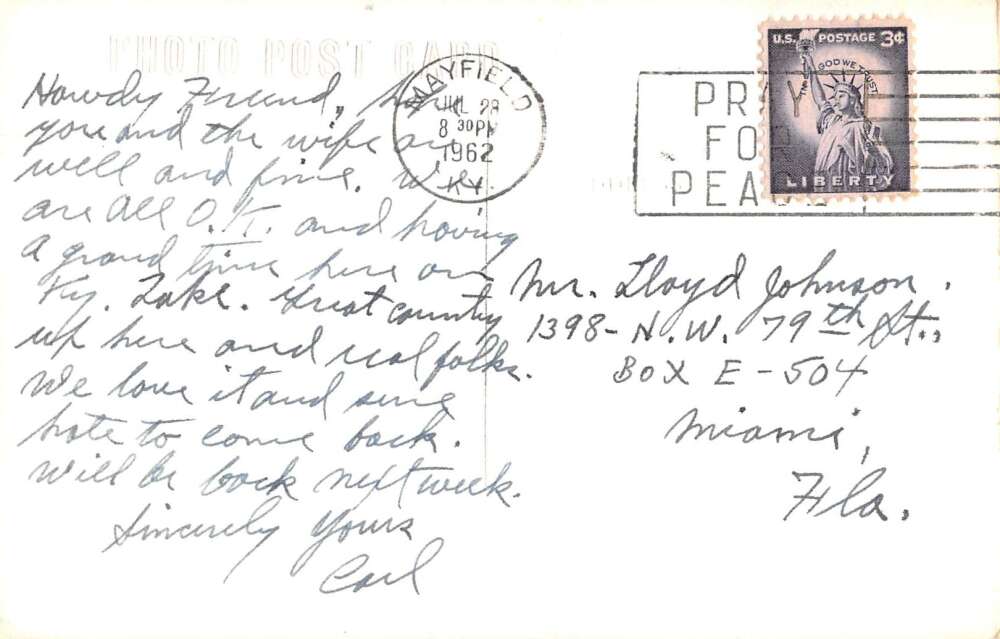 PHOTO POST CARD
MAYFIELD
JUL 28
8 30 PM
1962
KY.
PRAY
FOR
PEACE
U.S. POSTAGE 3¢
IN GOD WE TRUST
LIBERTY
Howdy Friend, hope
you and the wife are
well and fine. We
are all O.K. and having
a grand time here on
Ky. Lake. Great country
up here and real folks.
We love it and sure
hate to come back.
Will be back next week.
Sincerely Yours
Carl
Mr. Lloyd Johnson.
1398- N.W. 79th St.,
BOX E-504
Miami,
Fla.